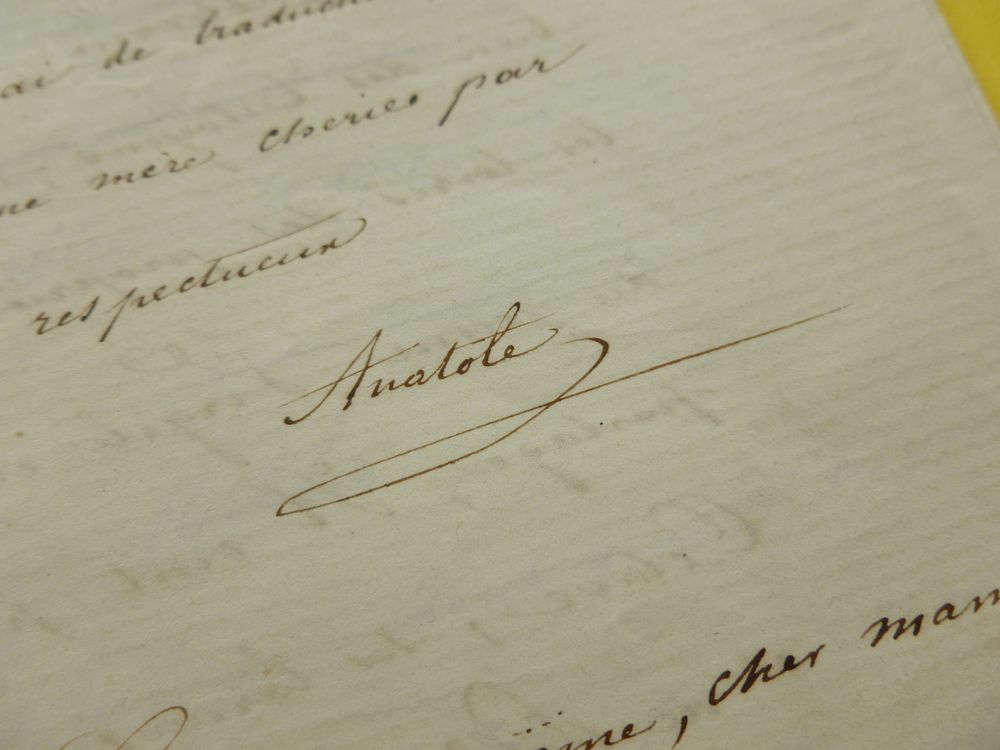 ai de traduct
ne mère cheries par
respectueux
Anatole
ême, cher mam